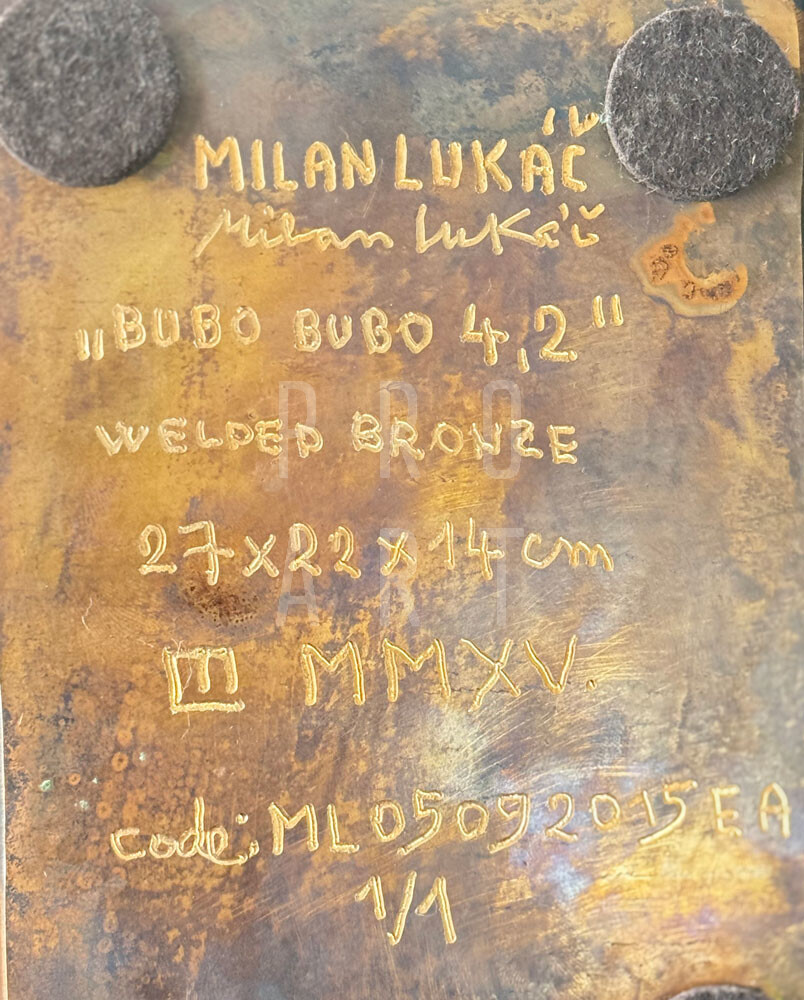 MILAN LUKÁČ
Milan Lukáč
„BUBO BUBO 4,2"
WELDED BRONZE
PRO
27x22x14 cm
ART
E MMXV.
code: ML05092015EA
1/1